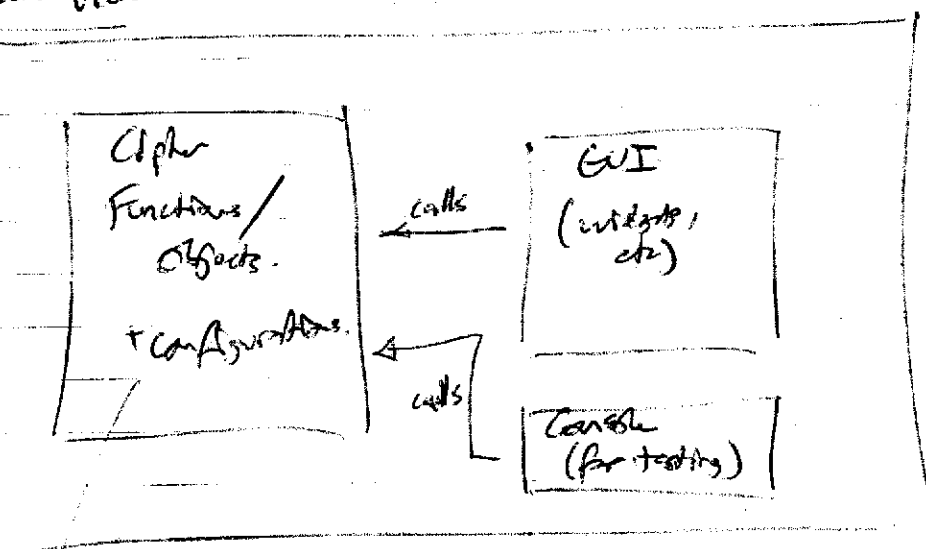 Cipher
Functions/
Objects.
+ configurations.
calls
GUI
(widgets,
etc)
calls
Console
(for testing)